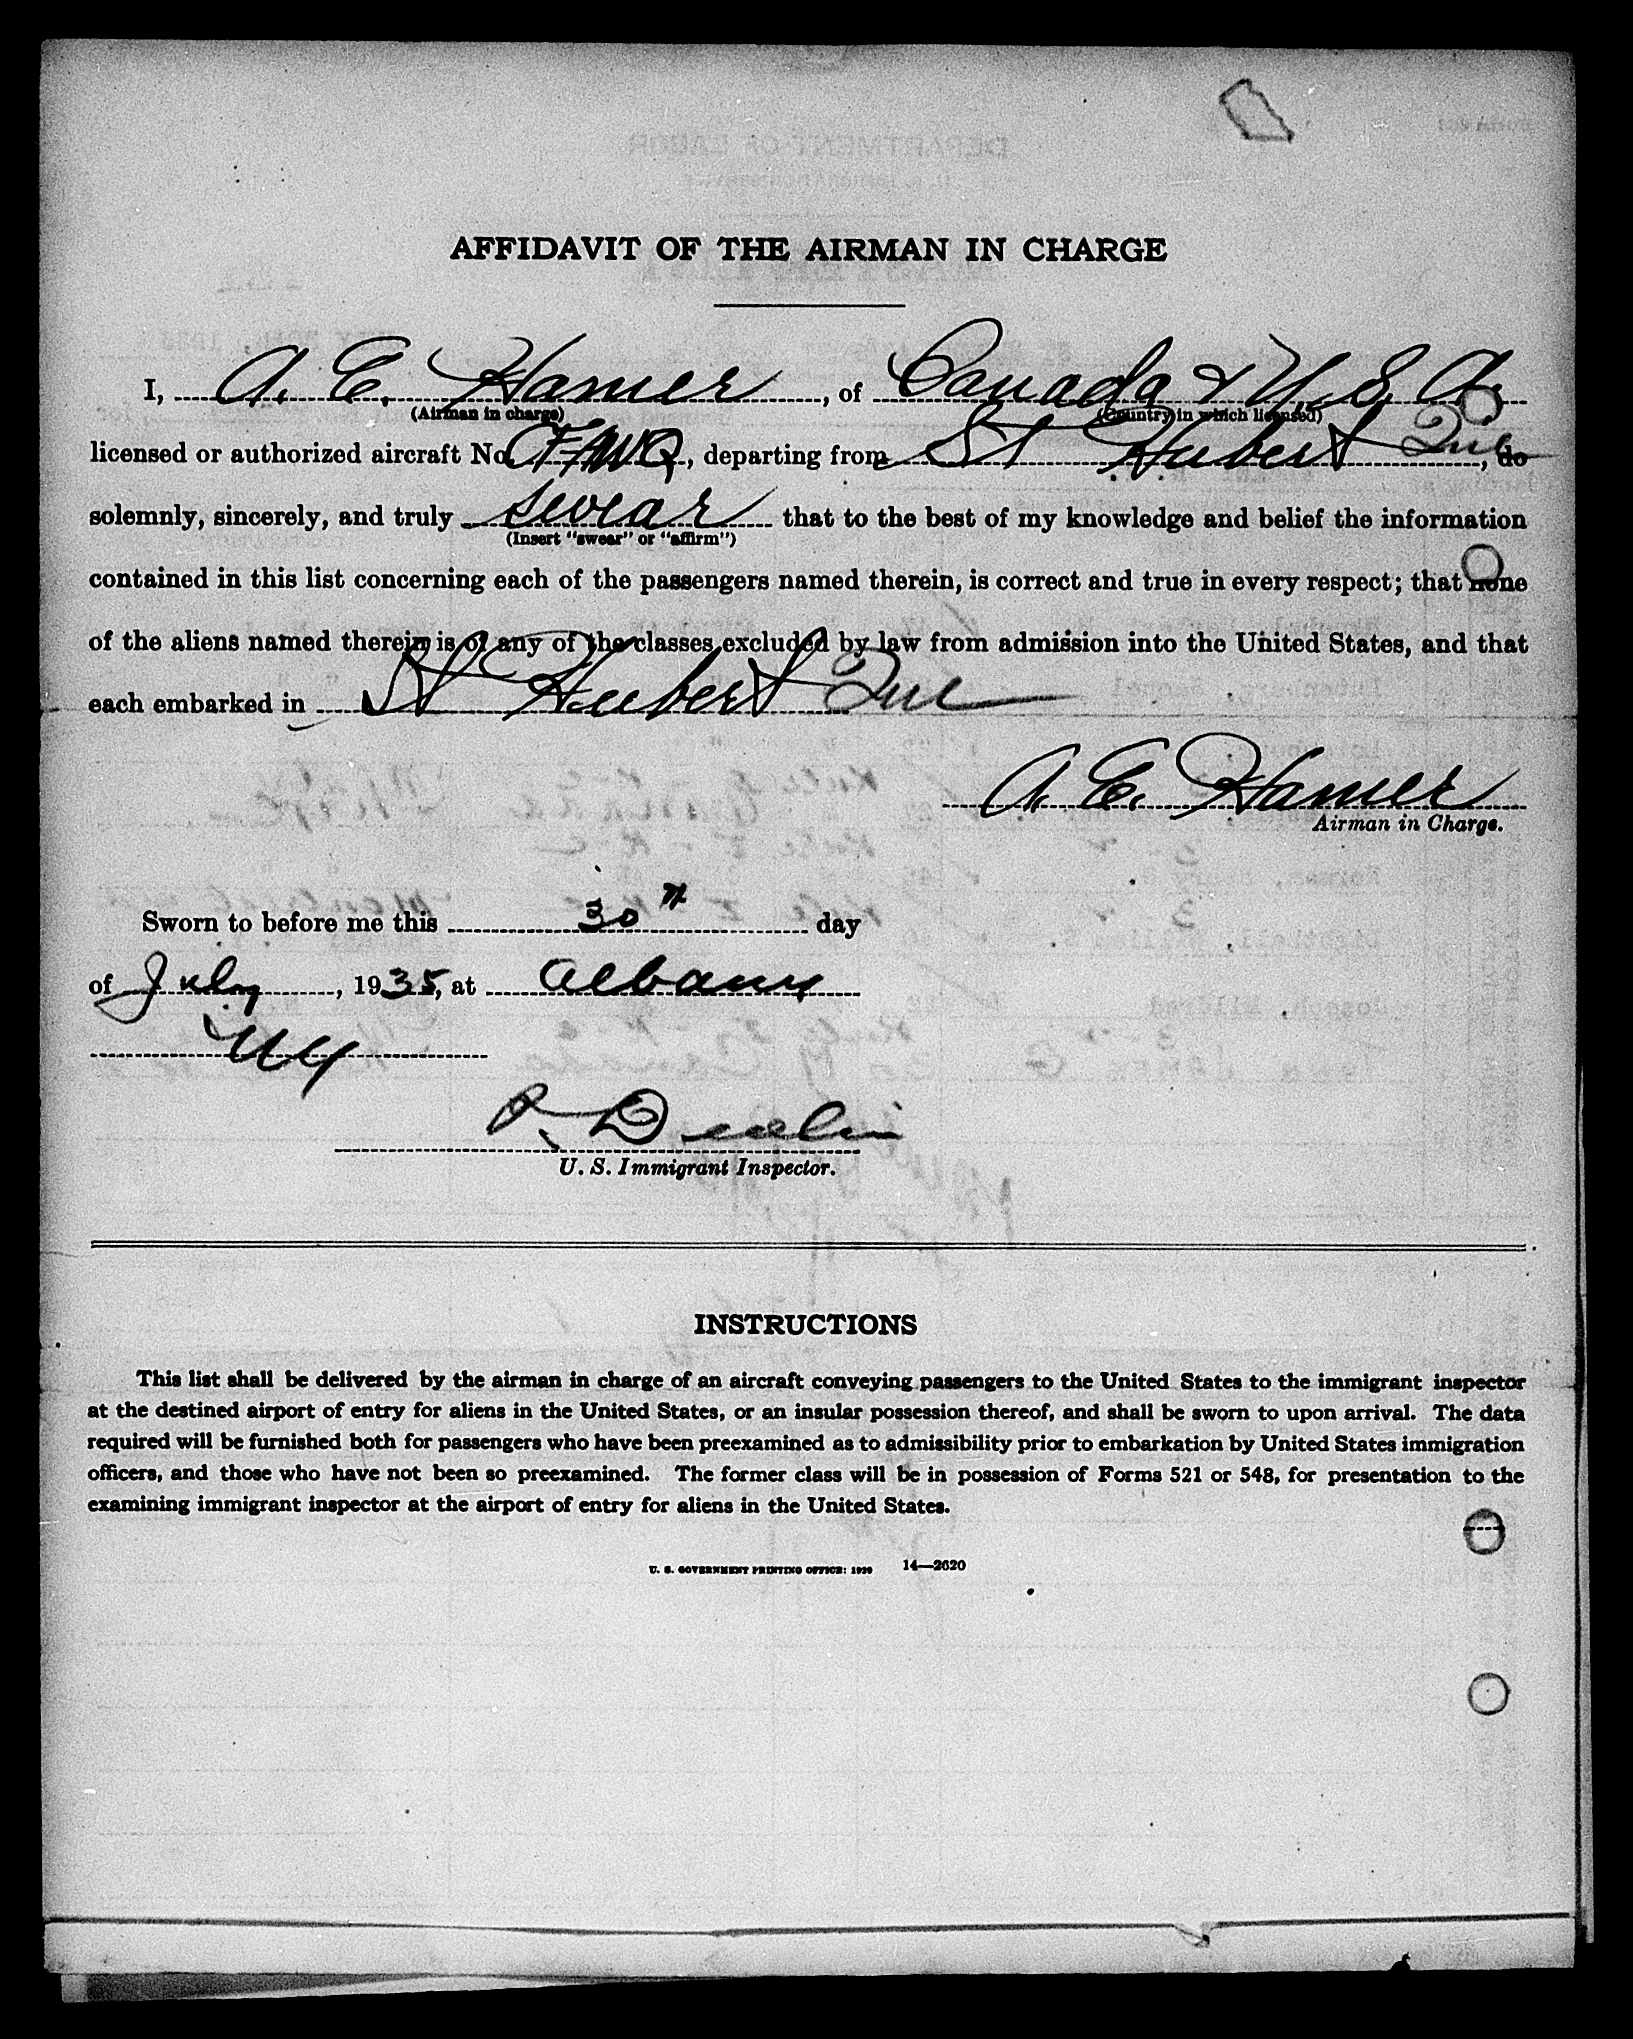 AFFIDAVIT OF THE AIRMAN IN CHARGE
I, A. E. Hamer, of Canada & U.S.A.
(Airman in charge) (Country in which licensed)
licensed or authorized aircraft No. CFAWQ, departing from St Hubert Que, do
solemnly, sincerely, and truly swear that to the best of my knowledge and belief the information
(Insert "swear" or "affirm")
contained in this list concerning each of the passengers named therein, is correct and true in every respect; that none
of the aliens named therein is of any of the classes excluded by law from admission into the United States, and that
each embarked in St Hubert Que
A. E. Hamer
Airman in Charge.
Sworn to before me this 30th day
of July, 1935, at Albany
NY
U. S. Immigrant Inspector.
INSTRUCTIONS
This list shall be delivered by the airman in charge of an aircraft conveying passengers to the United States to the immigrant inspector
at the destined airport of entry for aliens in the United States, or an insular possession thereof, and shall be sworn to upon arrival. The data
required will be furnished both for passengers who have been preexamined as to admissibility prior to embarkation by United States immigration
officers, and those who have not been so preexamined. The former class will be in possession of Forms 521 or 548, for presentation to the
examining immigrant inspector at the airport of entry for aliens in the United States.
U. S. GOVERNMENT PRINTING OFFICE: 1930 14—2620